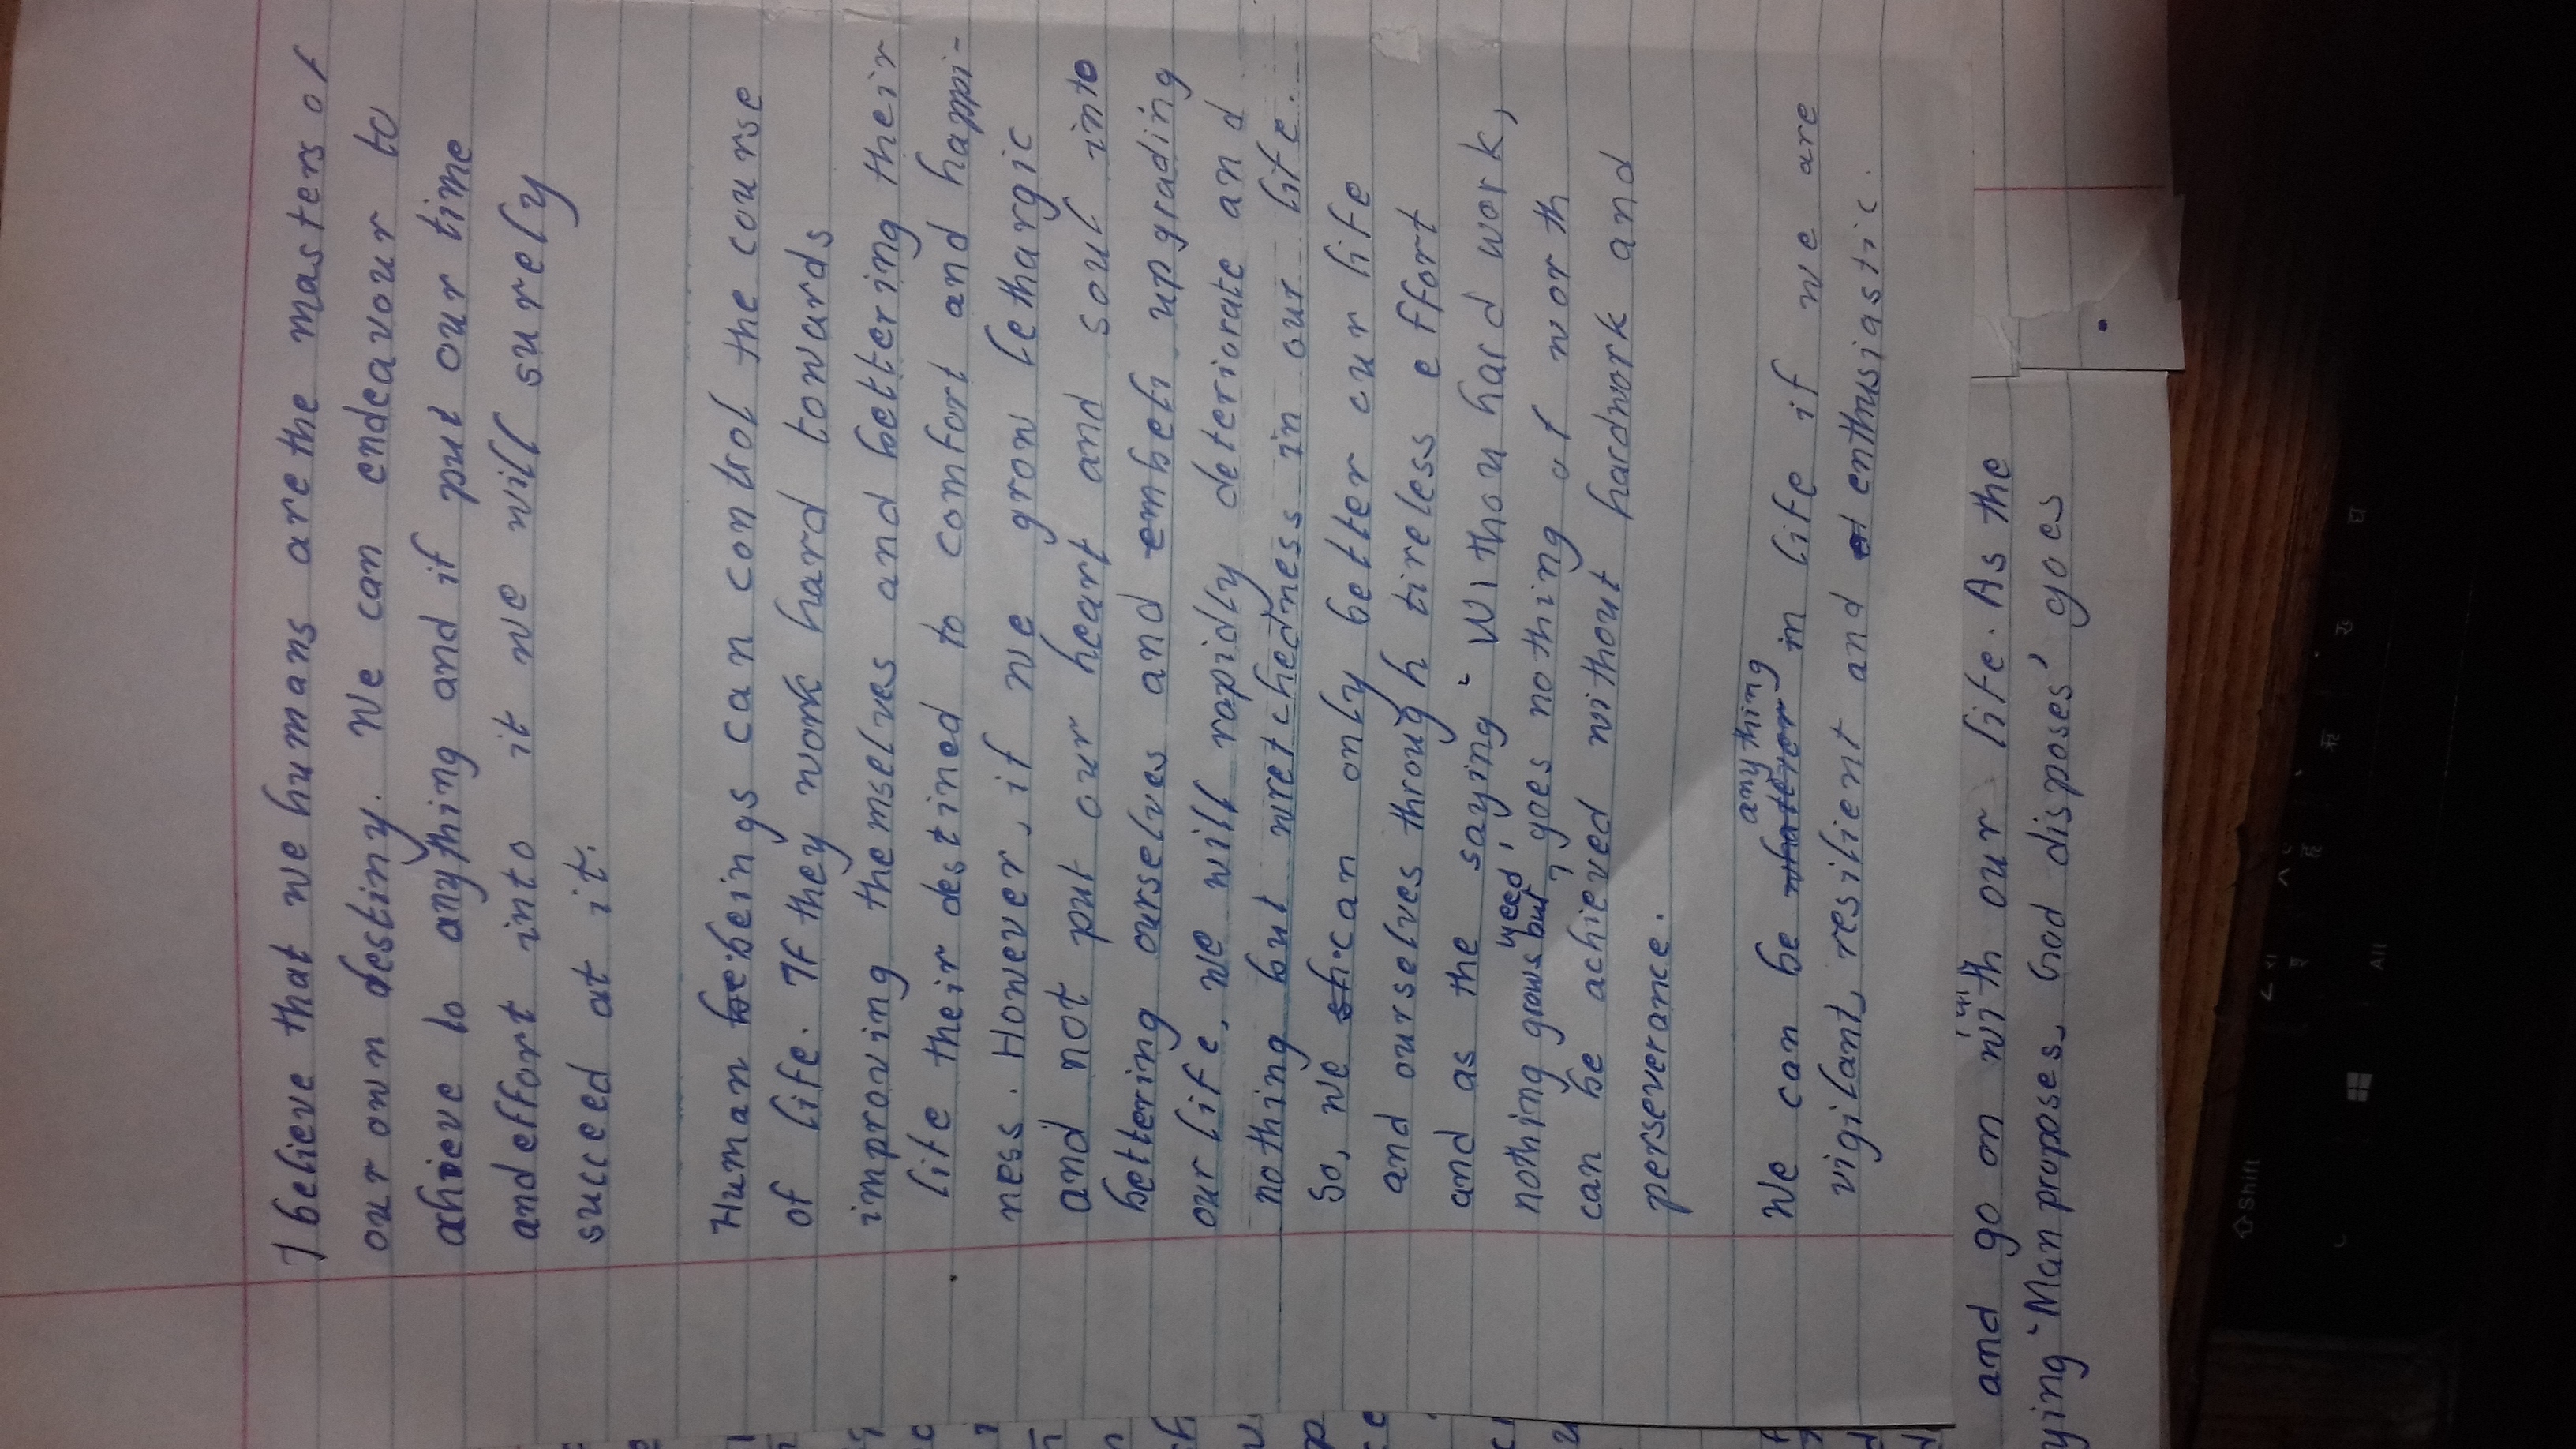 I believe that we humans are the masters of
our own destiny. We can endeavour to
ahieve to anything and if put our time
and effort into it we will surely
succeed at it.
Human beings can control the course
of life. If they work hard towards
improving themselves and bettering their
life their destined to comfort and happi-
ness. However, if we grow lethargic
and not put our heart and soul into
bettering ourselves and embeli upgrading
our life, we will rapidly deteriorate and
nothing but wretchedness in our life.
So, we can only better our life
and ourselves through tireless effort
and as the saying 'Withou hard work,
nothing grows but weed', goes nothing of worth
can be achieved without hardwork and
perseverance.
We can be whatever anything in life if we are
vigilant, resilient and enthusiastic.
and go on with our life. As the
ying 'Man proposes, God disposes' goes
Shift
Alt